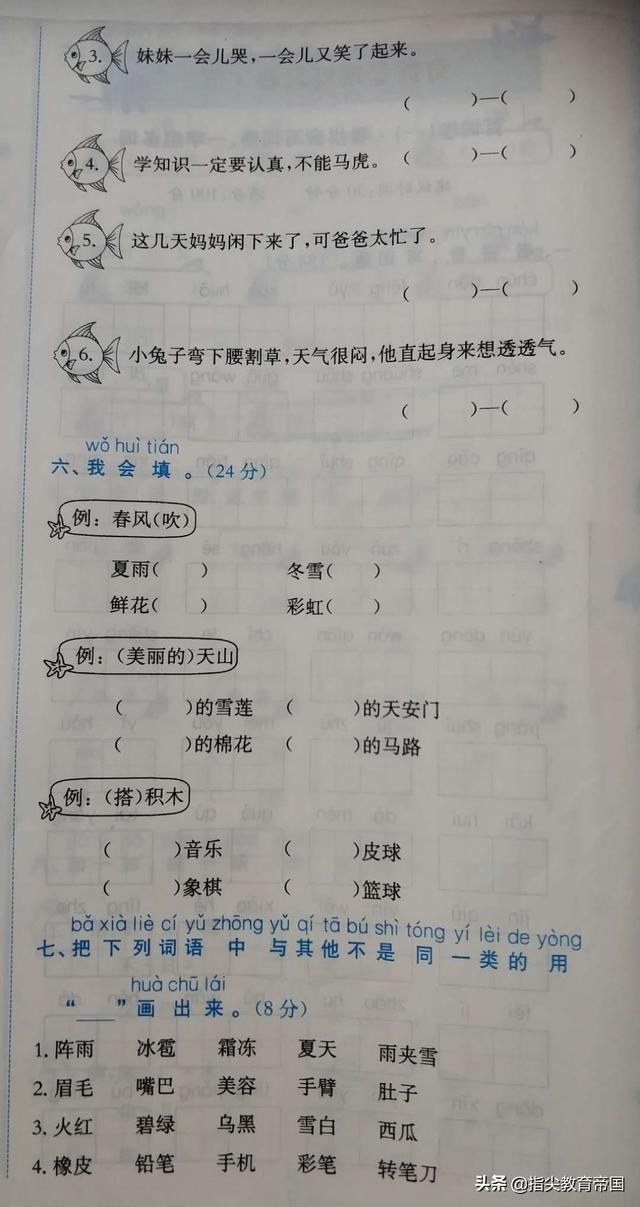 3. 妹妹一会儿哭，一会儿又笑了起来。
（　　）—（　　）
4. 学知识一定要认真，不能马虎。（　　）—（　　）
5. 这几天妈妈闲下来了，可爸爸太忙了。
（　　）—（　　）
6. 小兔子弯下腰割草，天气很闷，他直起身来想透透气。
（　　）—（　　）
wǒ huì tián
六、我会填。（24分）
例：春风（吹）
夏雨（　　）　冬雪（　　）
鲜花（　　）　彩虹（　　）
例：（美丽的）天山
（　　）的雪莲　（　　）的天安门
（　　）的棉花　（　　）的马路
例：（搭）积木
（　　）音乐　（　　）皮球
（　　）象棋　（　　）篮球
bǎ xià liè cí yǔ zhōng yǔ qí tā bú shì tóng yí lèi de yòng
七、把下列词语中与其他不是同一类的用
huà chū lái
“___”画出来。（8分）
1. 阵雨　冰雹　霜冻　夏天　雨夹雪
2. 眉毛　嘴巴　美容　手臂　肚子
3. 火红　碧绿　乌黑　雪白　西瓜
4. 橡皮　铅笔　手机　彩笔　转笔刀
头条 @指尖教育帝国